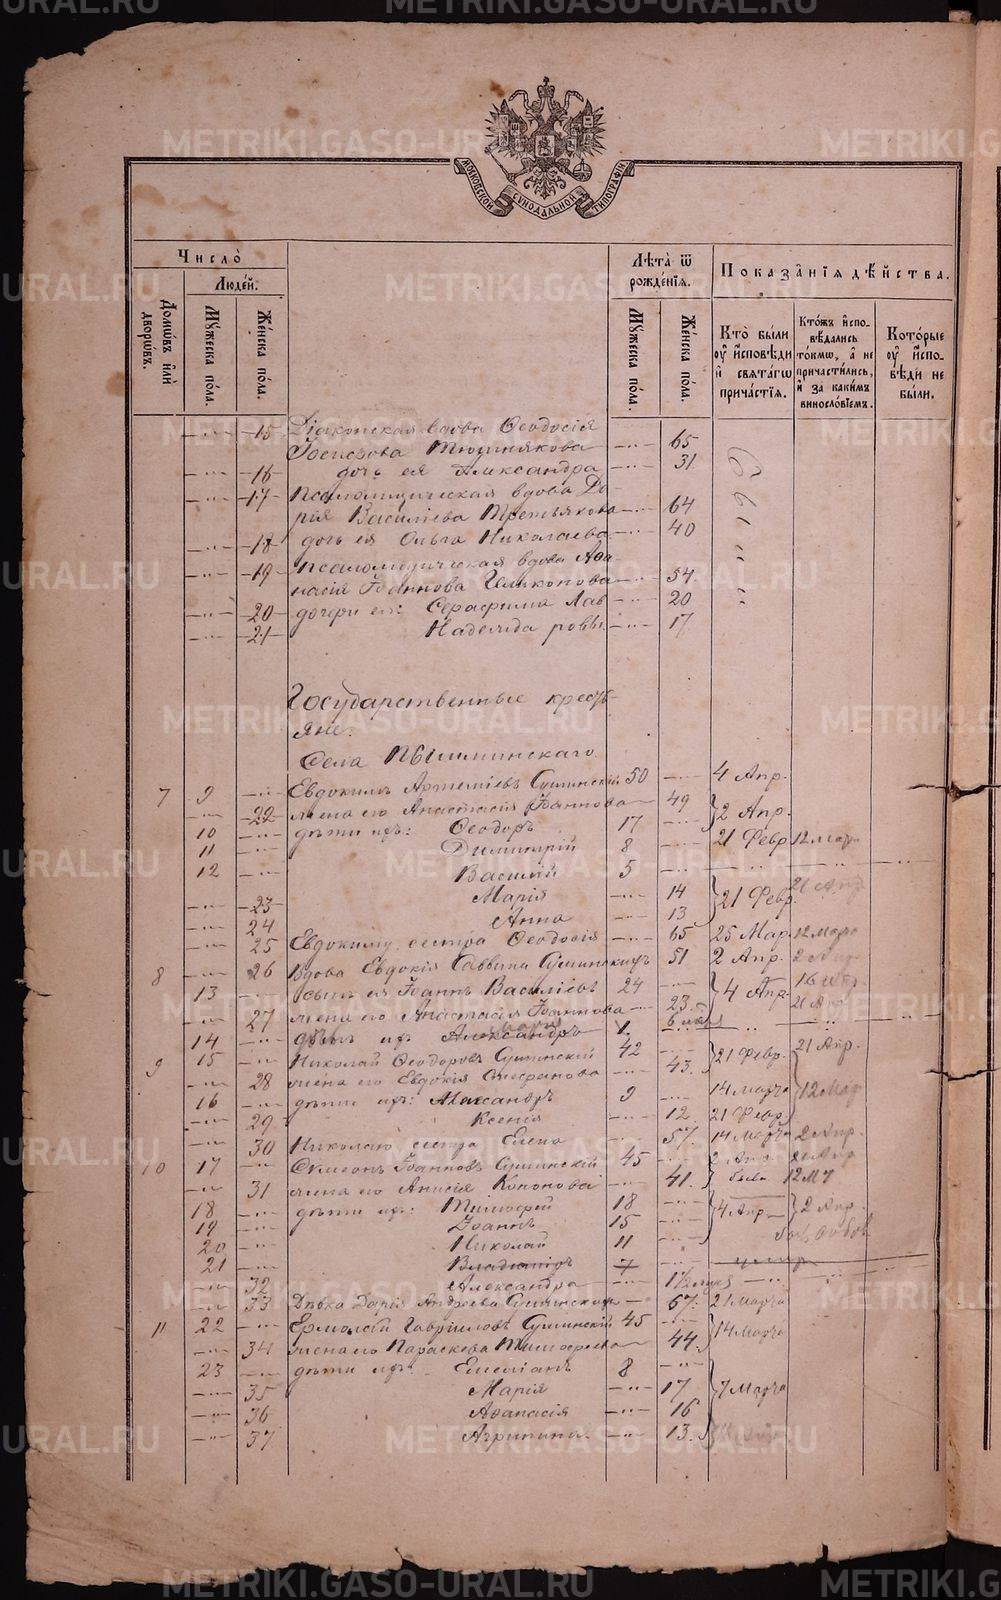 МОСКОВСКОЙ СУНОДАЛЬНОЙ ТИПОГРАФІИ
Число̀
Люде́й.
Домѡ́въ и҆лѝ дворѡ́въ.
Мꙋ́жеска по́ла.
Же́нска по́ла.
Лѣ́та ѿ рожде́нїѧ.
Мꙋ́жеска по́ла.
Же́нска по́ла.
Показа́нїѧ дѣ́йства.
Кто̀ бы́ли оу҆ и҆сповѣ́ди и҆ свѧта́гѡ прича́стїѧ.
Кто́жъ и҆спо-вѣ́дались то́кмѡ, а҆ не причасти́лись, и҆ за каки́мъ виносло́вїемъ.
Кото́рые оу҆ и҆спо-вѣ́ди не бы́ли.
15 Діаконская вдова Ѳеодосія
Тюшнякова 65
16 дочь ея Александра 31
17 Псаломщическая вдова Да-
рія Василіева Третьякова 64
18 дочь ея Ольга Николаева 40
19 Псаломщическая вдова Аѳа-
насія Іоаннова 54
20 дочери ея: Серафима Лав 20
21 Надежда ровы 17
Государственные кресть-
яне.
Села Пышминскаго
7 9 Евдокимъ Артеміевъ Сушинскій 50 4 Апр.
22 жена его Анастасія Іоаннова 49 2 Апр.
10 дѣти ихъ: Ѳеодоръ 17
11 Димитрій 8 21 Февр 12 марта
12 Василій 5
23 Марія 14 21 Февр.
24 Анна 13
25 Евдокиму сестра Ѳеодосія 65 25 Мар. 12 Марта
8 26 Вдова Евдокія Саввина Сушинскихъ 51 2 Апр.
13 сынъ ея Іоаннъ Василіевъ 24 4 Апр.
27 жена его Анастасія Іоаннова 23 21 Апр.
14 ихъ Александръ
9 15 Николай Ѳеодоровъ Сушинскій 42 21 Февр. 21 Апр.
28 жена его Евдокія Стефанова 43.
16 дѣти ихъ: Александръ 9 14 марта 12 Мар
29 Ксенія 12 21 Февр.
30 Николаю сестра Елена 57 14 Марта 2 Апр.
10 17 Симеонъ Іоанновъ Сушинскій 45 2 Апр
31 жена его Анисія Кононова 41. были
18 дѣти ихъ: Тимоѳей 18 4 Апр 2 Апр.
19 Іоаннъ 15
20 Николай 11
21 Владиміръ 7
32 Александра 1½
33 Дѣвка Дарія Андреева Сушинскихъ 67. 21 Марта
11 22 Ермолай Гавріиловъ Сушинскій 45 14 Марта
34 жена его Параскева Тимоѳеева 44.
23 дѣти ихъ: Емеліанъ 8
35 Марія 17 7 Марта
36 Аѳанасія 16
37 Агрипина. 13.
METRIKI.GASO-URAL.RU